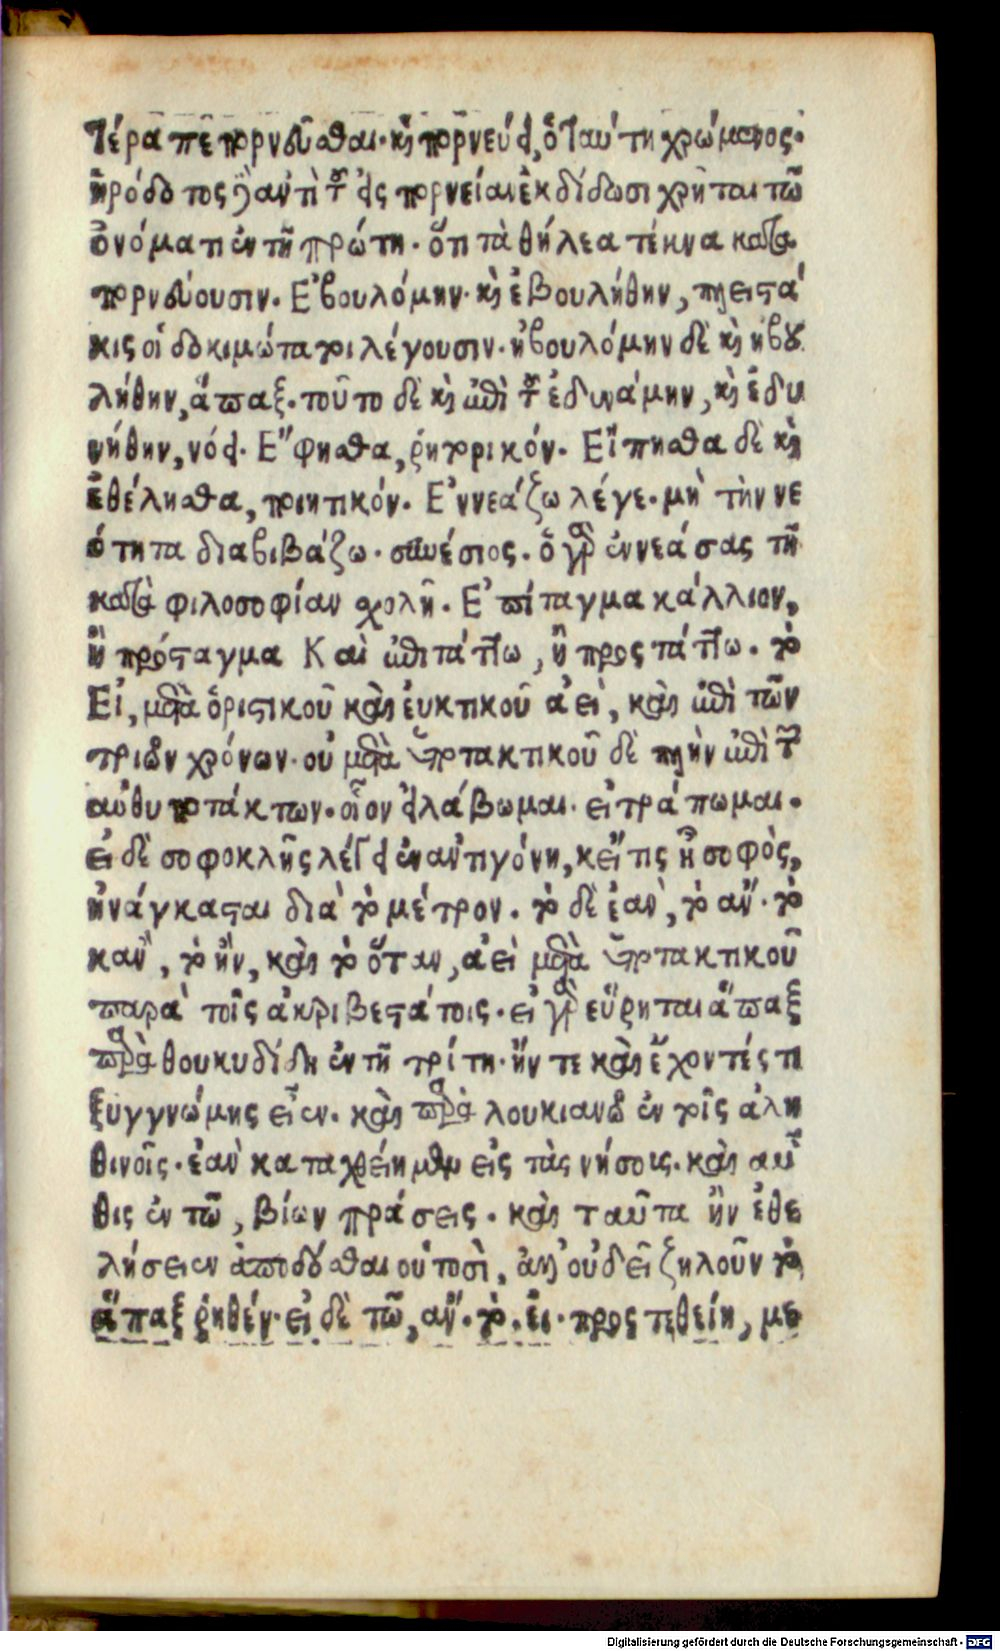 τέρα πεπορνεῦσθαι· καὶ πορνεύει, ὁ ταύτῃ χρώμενος·
ἡρόδοτος δ' ἀντὶ τοῦ εἰς πορνείαν ἐκδίδωσι χρῆται τῶ
ὀνόματι ἐν τῆ πρώτη· ὅτι τὰ θήλεα τέκνα κατα
πορνεύουσιν. Ἐβουλόμην· καὶ ἐβουλήθην, πλειστά
κις οἱ δοκιμώτατοι λέγουσιν· ἠβουλόμην δὲ καὶ ἠβου
λήθην, ἅπαξ. τοῦτο δὲ καὶ ἐπὶ τοῦ ἐδυνάμην, καὶ ἐδυ
νήθην, νόει. Ἔφησθα, ῥητορικόν. Εἴπησθα δὲ καὶ
ἐθέλησθα, ποιητικόν. Ἐννεάζω λέγε· μὴ τὴν νε
ότητα διαβιβάζω· συνέσιος. ὁ γὰρ ἐννεάσας τῆ
κατὰ φιλοσοφίαν σχολῆ. Ἐπίταγμα κάλλιον,
ἢ πρόσταγμα Καὶ ἐπιτάττω, ἢ προστάττω. τὸ
Εἰ, μετὰ ὁριστικοῦ καὶ εὐκτικοῦ ἀεὶ, καὶ ἐπὶ τῶν
τριῶν χρόνων· οὐ μετὰ ὑποτακτικοῦ δὲ πλὴν ἐπὶ τῶν
αὐθυποτάκτων· οἷον εἰ λάβωμαι· εἰ τράπωμαι·
εἰ δὲ σοφοκλῆς λέγει ἐν ἀντιγόνη, κεἴ τις ᾖ σοφὸς,
ἠνάγκασται διὰ τὸ μέτρον. τὸ δὲ ἐαν, τὸ αν· τὸ
καν, τὸ ἢν, καὶ τὸ ὅταν, ἀεὶ μετὰ ὑποτακτικοῦ
παρὰ τοῖς ἀκριβεστάτοις· εἰ γὰρ εὕρηται ἅπαξ
παρὰ θουκυδίδη ἐν τῆ τρίτη· ἤν τε καὶ ἔχοντές τι
ξυγγνώμης εἶεν. καὶ παρὰ λουκιανῶ ἐν τοῖς ἀλη
θινοῖς· ἐὰν καταχθείημεν εἰς τὰς νήσους. καὶ αὖ
θις ἐν τῶ, βίων πράσεις· καὶ ταῦτα ἢν ἐθε
λήσειεν ἀποδόσθαι οὑτοσὶ, ἀλλ' οὐ δεῖ ζηλοῦν τὸ
ἅπαξ ῥηθέν· εἰ δὲ τῶ, αν· τὸ, εἰ· προστεθείη, με
Digitalisierung gefördert durch die Deutsche Forschungsgemeinschaft - DFG